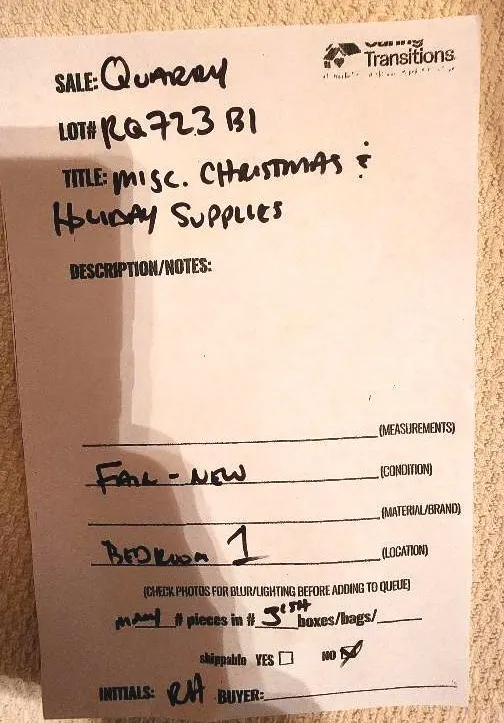 Caring
Transitions
SALE: QUARRY
LOT# RQ723 B1
TITLE: MISC. CHRISTMAS &
HOLIDAY SUPPLIES
DESCRIPTION/NOTES:
(MEASUREMENTS)
FAIR - NEW (CONDITION)
(MATERIAL/BRAND)
BEDROOM 1 (LOCATION)
(CHECK PHOTOS FOR BLUR/LIGHTING BEFORE ADDING TO QUEUE)
many # pieces in # boxes/bags/
shippable YES NO
INITIALS: RH BUYER: